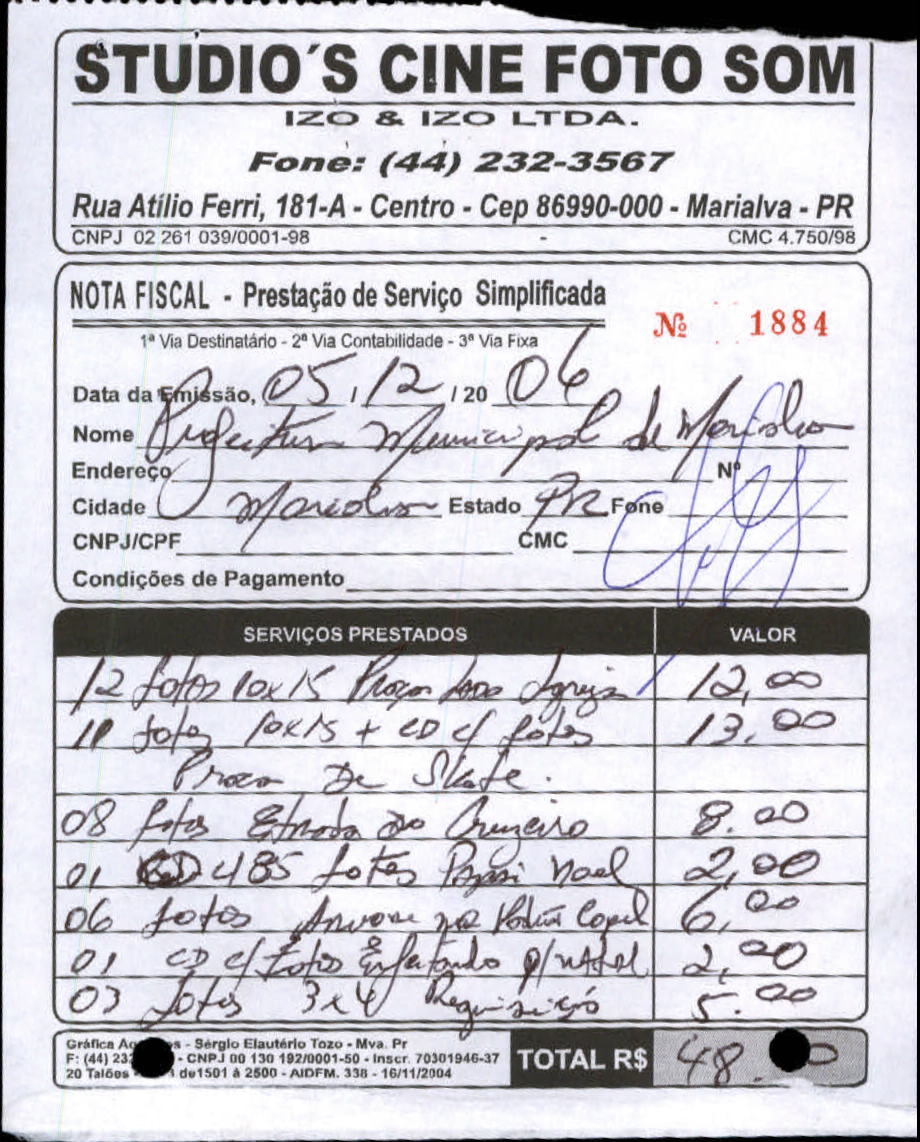 STUDIO´S CINE FOTO SOM
IZO & IZO LTDA.
Fone: (44) 232-3567
Rua Atílio Ferri, 181-A - Centro - Cep 86990-000 - Marialva - PR
CNPJ 02 261 039/0001-98 CMC 4.750/98
NOTA FISCAL - Prestação de Serviço Simplificada
Nº 1884
1ª Via Destinatário - 2ª Via Contabilidade - 3ª Via Fixa
Data da Emissão, 05 / 12 / 20 06
Nome Prefeitura Municipal de Marialva
Endereço Nº
Cidade Marialva Estado PR Fone
CNPJ/CPF CMC
Condições de Pagamento
SERVIÇOS PRESTADOS VALOR
12 fotos 10x15 Praça Igreja 12,00
11 fotos 10x15 + CD c/ fotos 13.00
Praça De Skate.
08 fotos Entrada do Cruzeiro 8.00
01 CD 485 fotos Papai Noel 2,00
06 fotos Copel 6,00
01 CD c/ Fotos Enfeitando p/ natal 2,00
03 fotos 3x4 5.00
Gráfica - Sérgio Elautério Tozo - Mva. Pr
F: (44) - CNPJ 00 130 192/0001-50 - Inscr. 70301946-37
20 Talões de1501 à 2500 - AIDFM. 338 - 16/11/2004
TOTAL R$ 48.